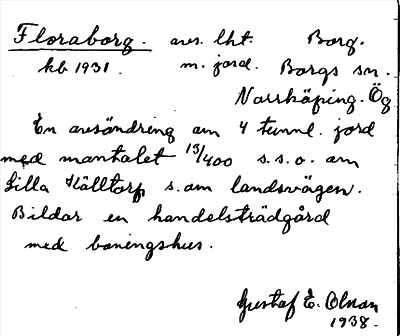 Floraborg. avs. lht. Borg.
kb 1931. m. jord. Borgs sn.
Norrköping. Ög
En avsöndring om 4 tunnl. jord
med mantalet 13/400 s.s.o. om
Lilla Källtorp s. om landsvägen.
Bildar en handelsträdgård
med boningshus.
Gustaf E. Olson
1938.